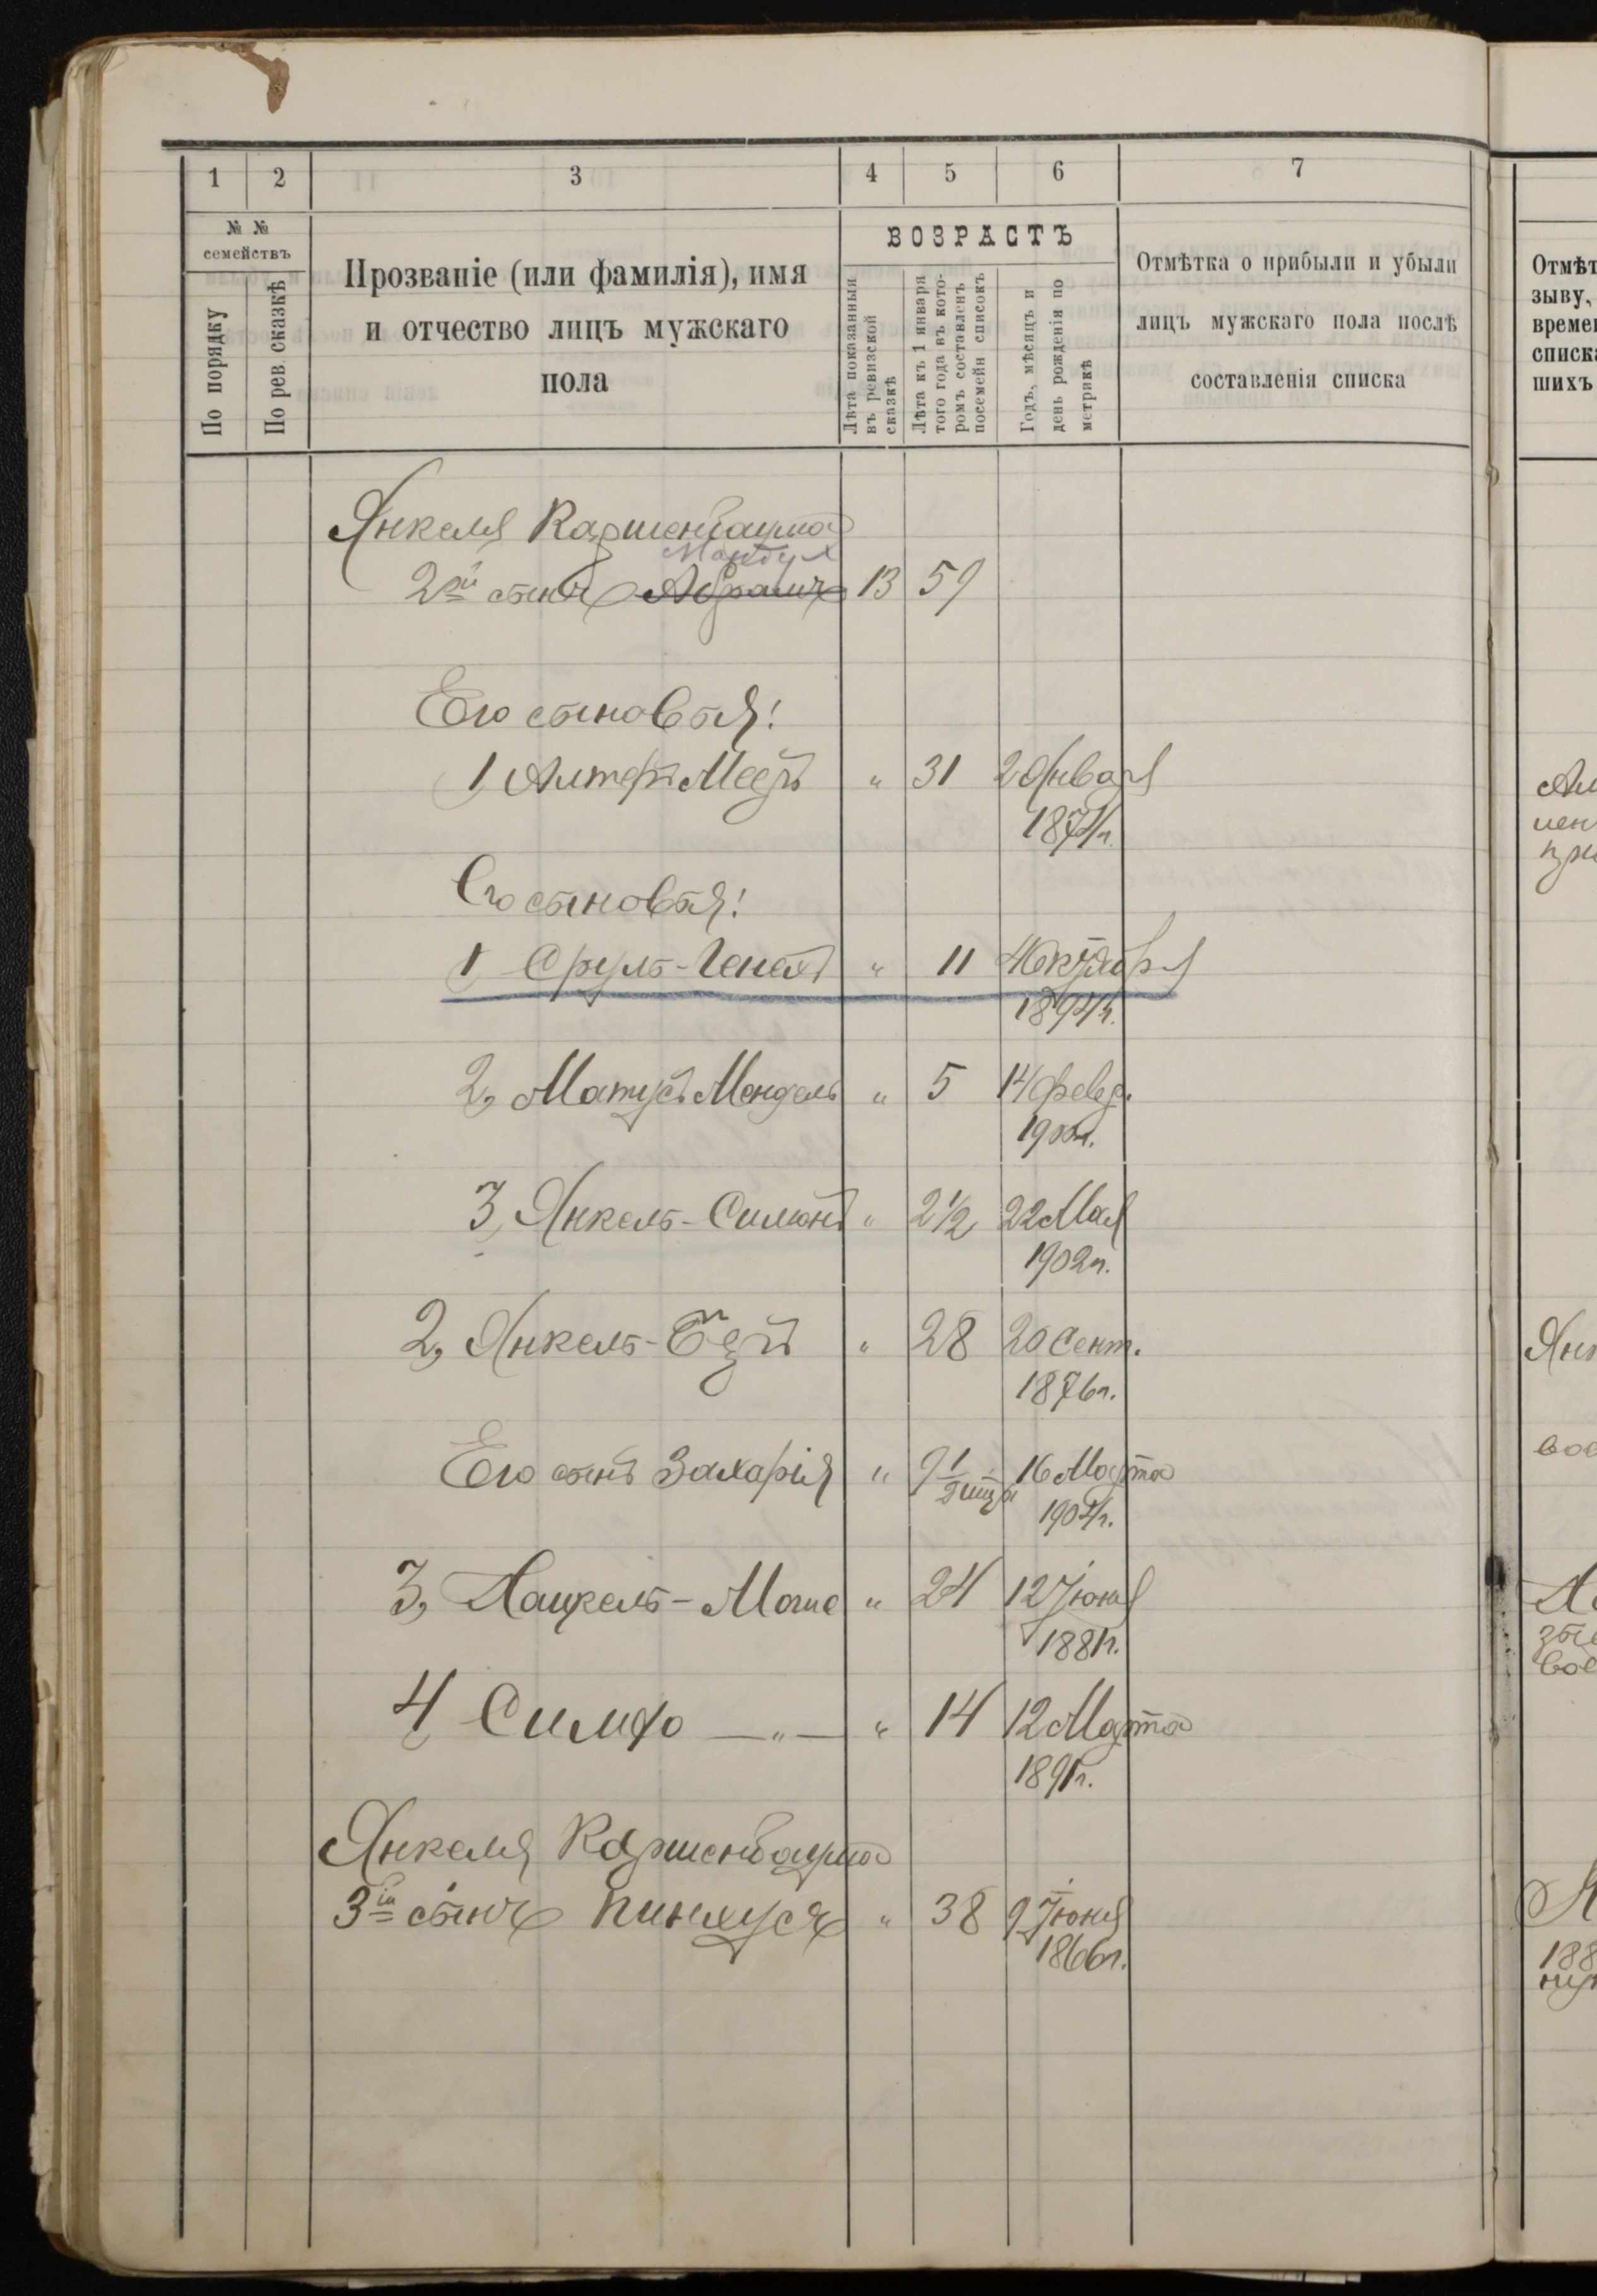 1 2 3 4 5 6 7
№ №
семействъ
По порядку
По рев сказкѣ
Прозваніе (или фамилія), имя
и отчество лицъ мужскаго
пола
ВОЗРАСТЪ
Лѣта показанныя
въ ревизской
сказкѣ
Лѣта къ 1 января
того года въ кото-
ромъ составленъ
посемейн списокъ
Годъ, мѣсяцъ и
день рожденія по
метрикѣ
Отмѣтка о прибыли и убыли
лицъ мужскаго пола послѣ
составленія списка
Отмѣт
зыву,
времен
списка
шихъ
Янкеля Каршенбаума
2й сынъ Абрамъ 13 59
Его сыновья:
1, Алтеръ Мееръ " 31 2 Января
1874г.
Его сыновья:
1 Сруль-Генехъ " 11 4 Октября
1894г.
2, Матусъ Мендель " 5 14 Февр.
1900г.
3, Янкель-Симонъ " 2 1/2 22 Мая
1902г.
2, Янкель- " 28 20 Сент.
1876г.
Его сынъ Захарія " 9 1/2 мцъ 16 Марта
1904г.
3, -Моше " 24 12 Іюня
1881г.
4 Симха —"— " 14 12 Марта
1891г.
Янкеля Каршенбаума
3й сынъ Пинхусъ " 38 9 Іюня
1866г.